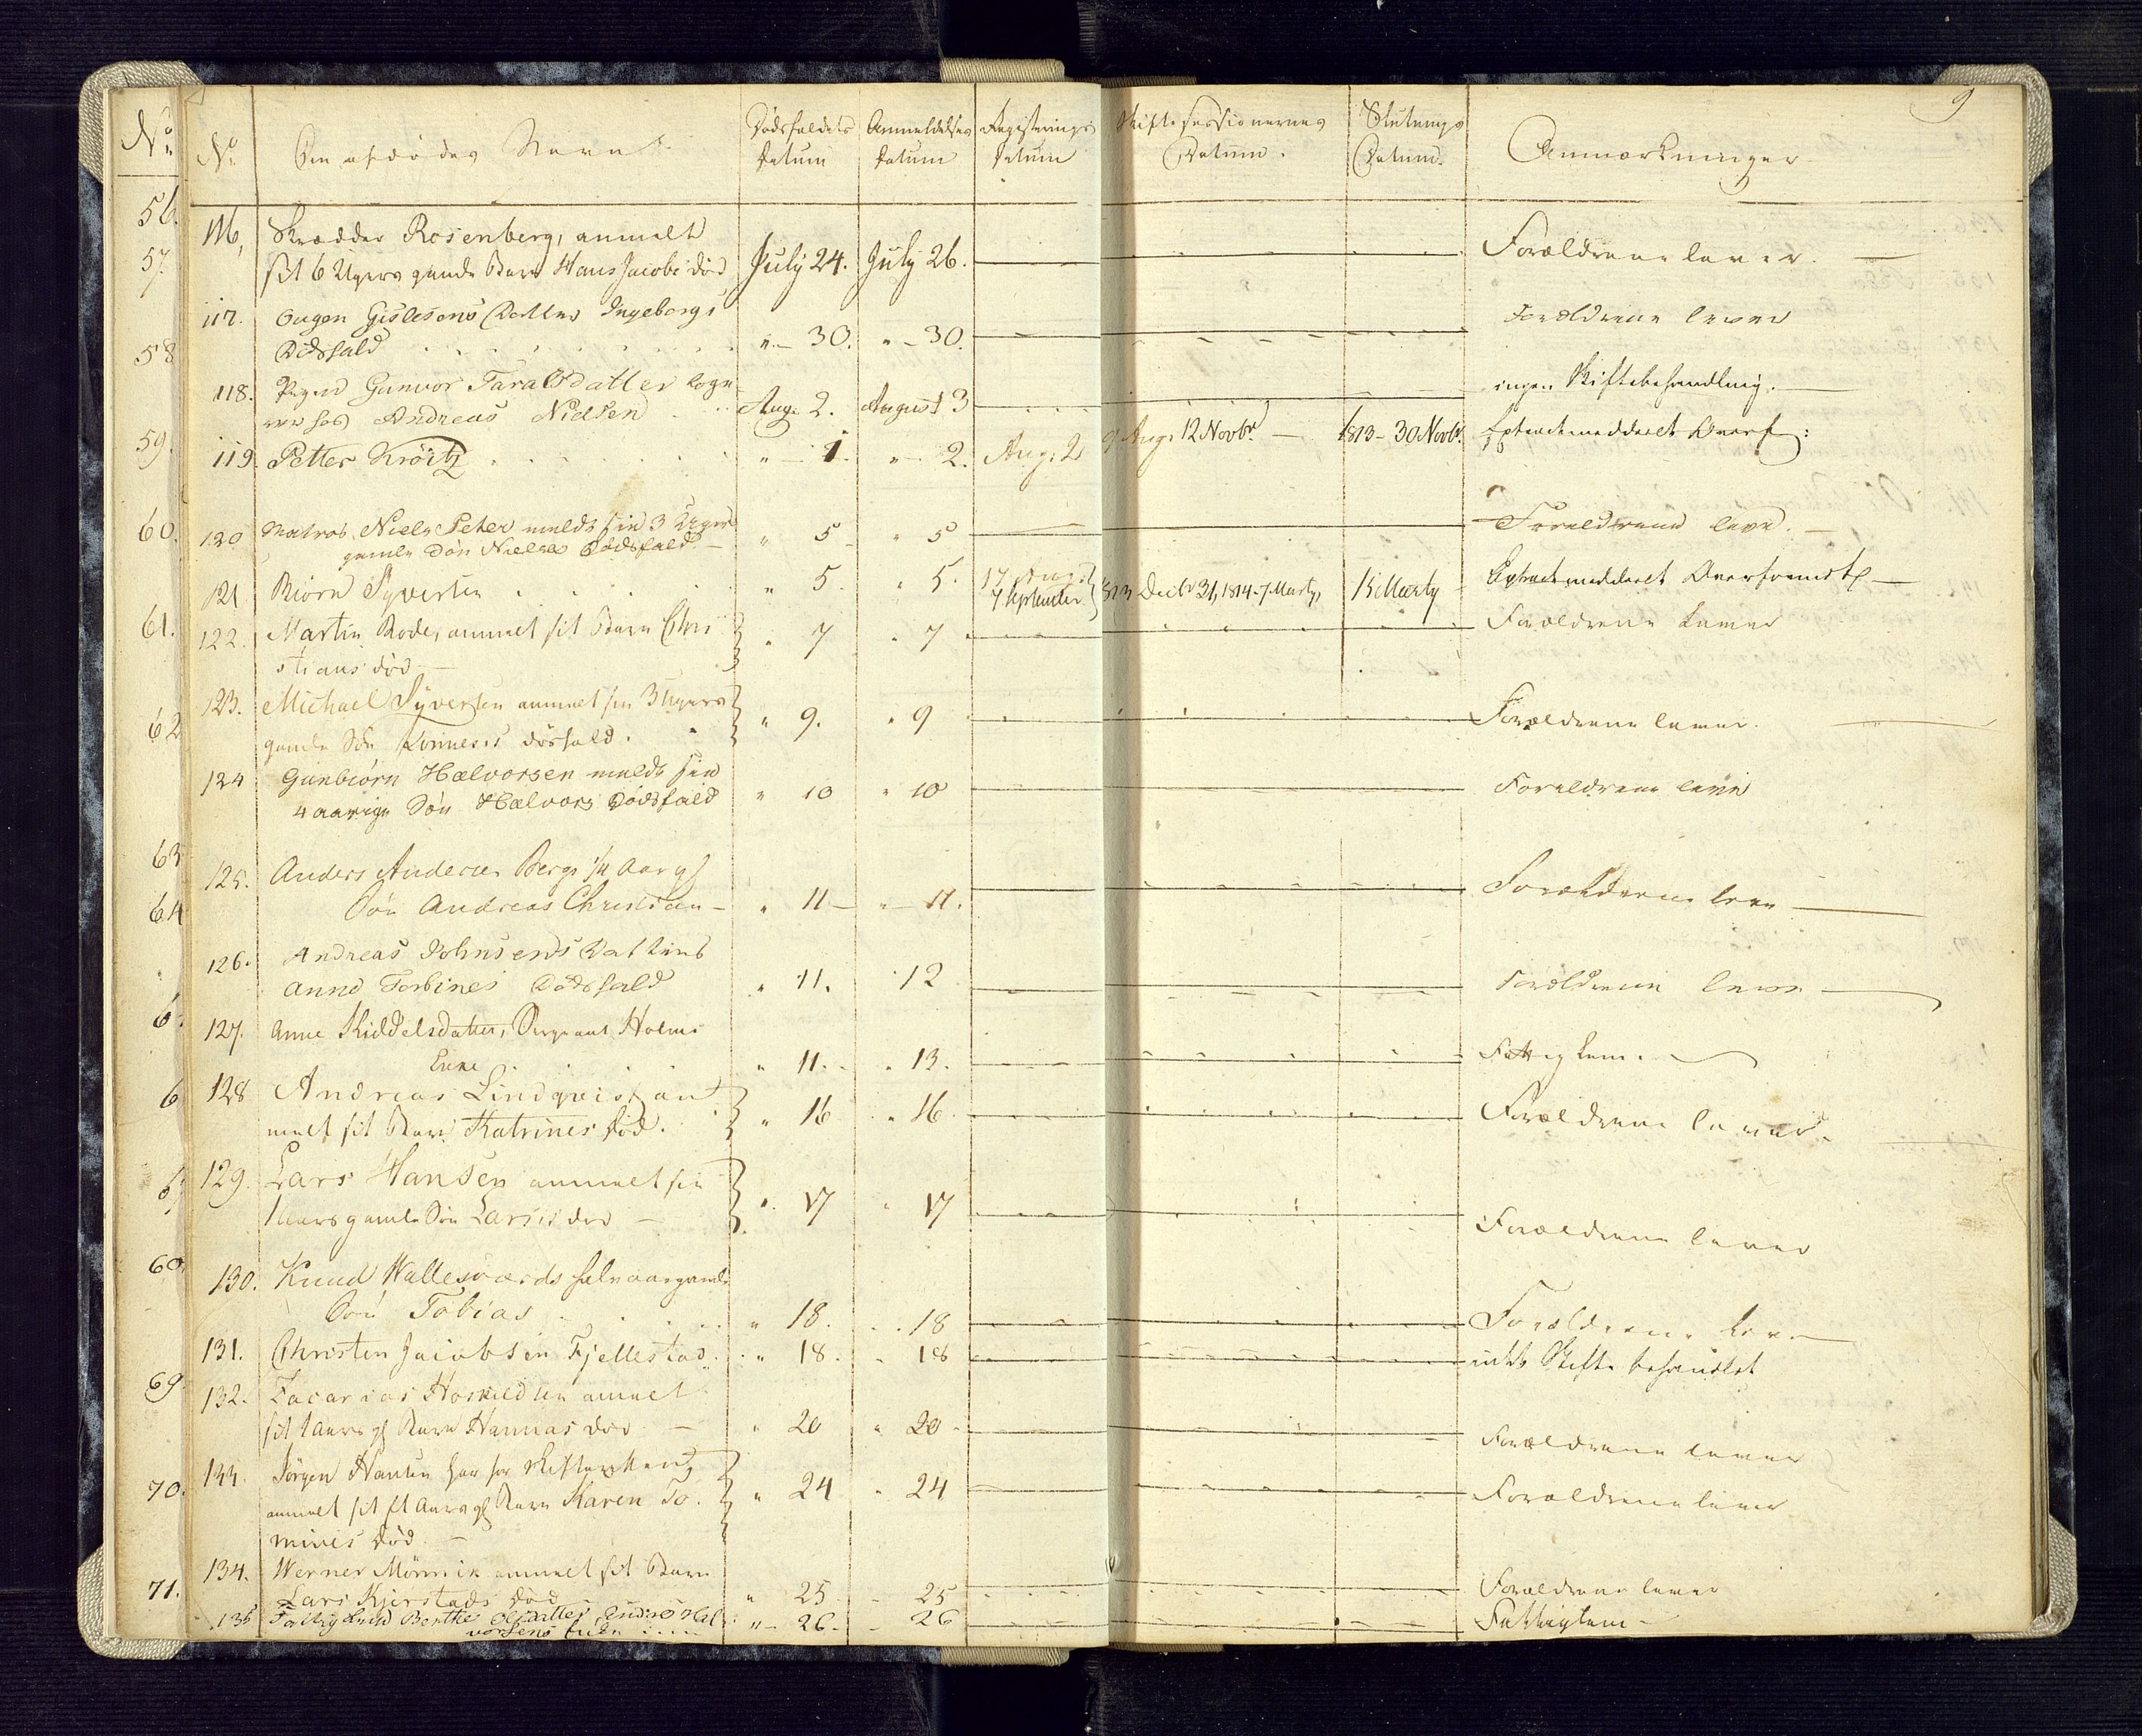 9
No
No
Den afdødes Navn
Dødsfaldets Datum
Anmeldelses Datum
Registerings Datum
Skiftesessionernes Datum.
Slutnings Datum.
Anmærkninger
56.
57.
58
59.
60.
61.
62
63
64
6
6
6
69.
70.
71.
116, Skrædder Rosenberg, anmelt
sit 6 Ugers gamle Barn Hans Jacobs død July 24. July 26. Forældrene lever.
117. Gislesens Datter Ingeborgs
Dødsfald " - 30. " - 30. Forældrene lever
118. Gunvor Taralsdatter
hos Andreas Nielsen Aug. 2. August 3 ingen Skiftebehandling.
119. Petter Kröitz " - 1. " - 2. Aug. 2 9 Aug. 12 Novbr. 1813 - 30 Novbr. Extractmeddeelt Overf:
120 Matros Niels Peter melds sin 3 Uger
gamle Søn Nielses Dødsfald " 5 " 5 Forældrene leve.
121 Biørn Syversen " 5. " 5. 17 Aug.
7 September 1813 Decbr 31, 1814 - 7 Marty, 15 Marty Extractmeddeelt
122. Martin Bode, anmelt sit Barn Chri
stians død " 7 " 7 Forældrene Lever
123. Michael Syversen anmelt sin 3 Ugers
gamle Søn dødsfald. " 9. " 9 Forældrene lever.
124 Gunbiørn Halvorsen melds sin
4 aarige Søn Halvors Dødsfald " 10 " 10 Forældrene leve
125. Anders Andersen Bergs
Søn Andreas Christian " 11 " 11. Forældrene leve
126. Andreas Johnsens Datters
Anne Torbines Dødsfald " 11. " 12 Forældrene leve
127. Anne Kiddelsdatter, Sergeant Holms
Enke " 11. " 13. Fattiglem.
128 Andreas Lindqvist an
melt sit Barn Katrines død. " 16 " 16 Forældrene lever.
129. Lars Hansen anmelt sin
1 Aars gamle Søn Larses død " 17 " 17 Forældrene lever
130. Knud Wallesværds halvaargamle
Søn Tobias " 18. " 18 Forældrene leve
131. Christen Jacobsen Fjellestad. " 18. " 18 Skifte behandlet
132. Zacarias anmelt
sit 1 Aars gl Barn Hannas død " 20 " 20 Forældrene lever
133. Jørgen Hansen har for Skifteretten
anmelt sit Aars gl Barn Karen To
mines død. " 24 " 24 Forældrene lever
134. Werner Mønnik anmelt sit Barn
Lars Kjerstads død " 25 - 25 Forældrene lever
135 Fattiglem Berthe Olsdatter, Hal
vorsens Enke " - 26. - 26 Fattiglem -